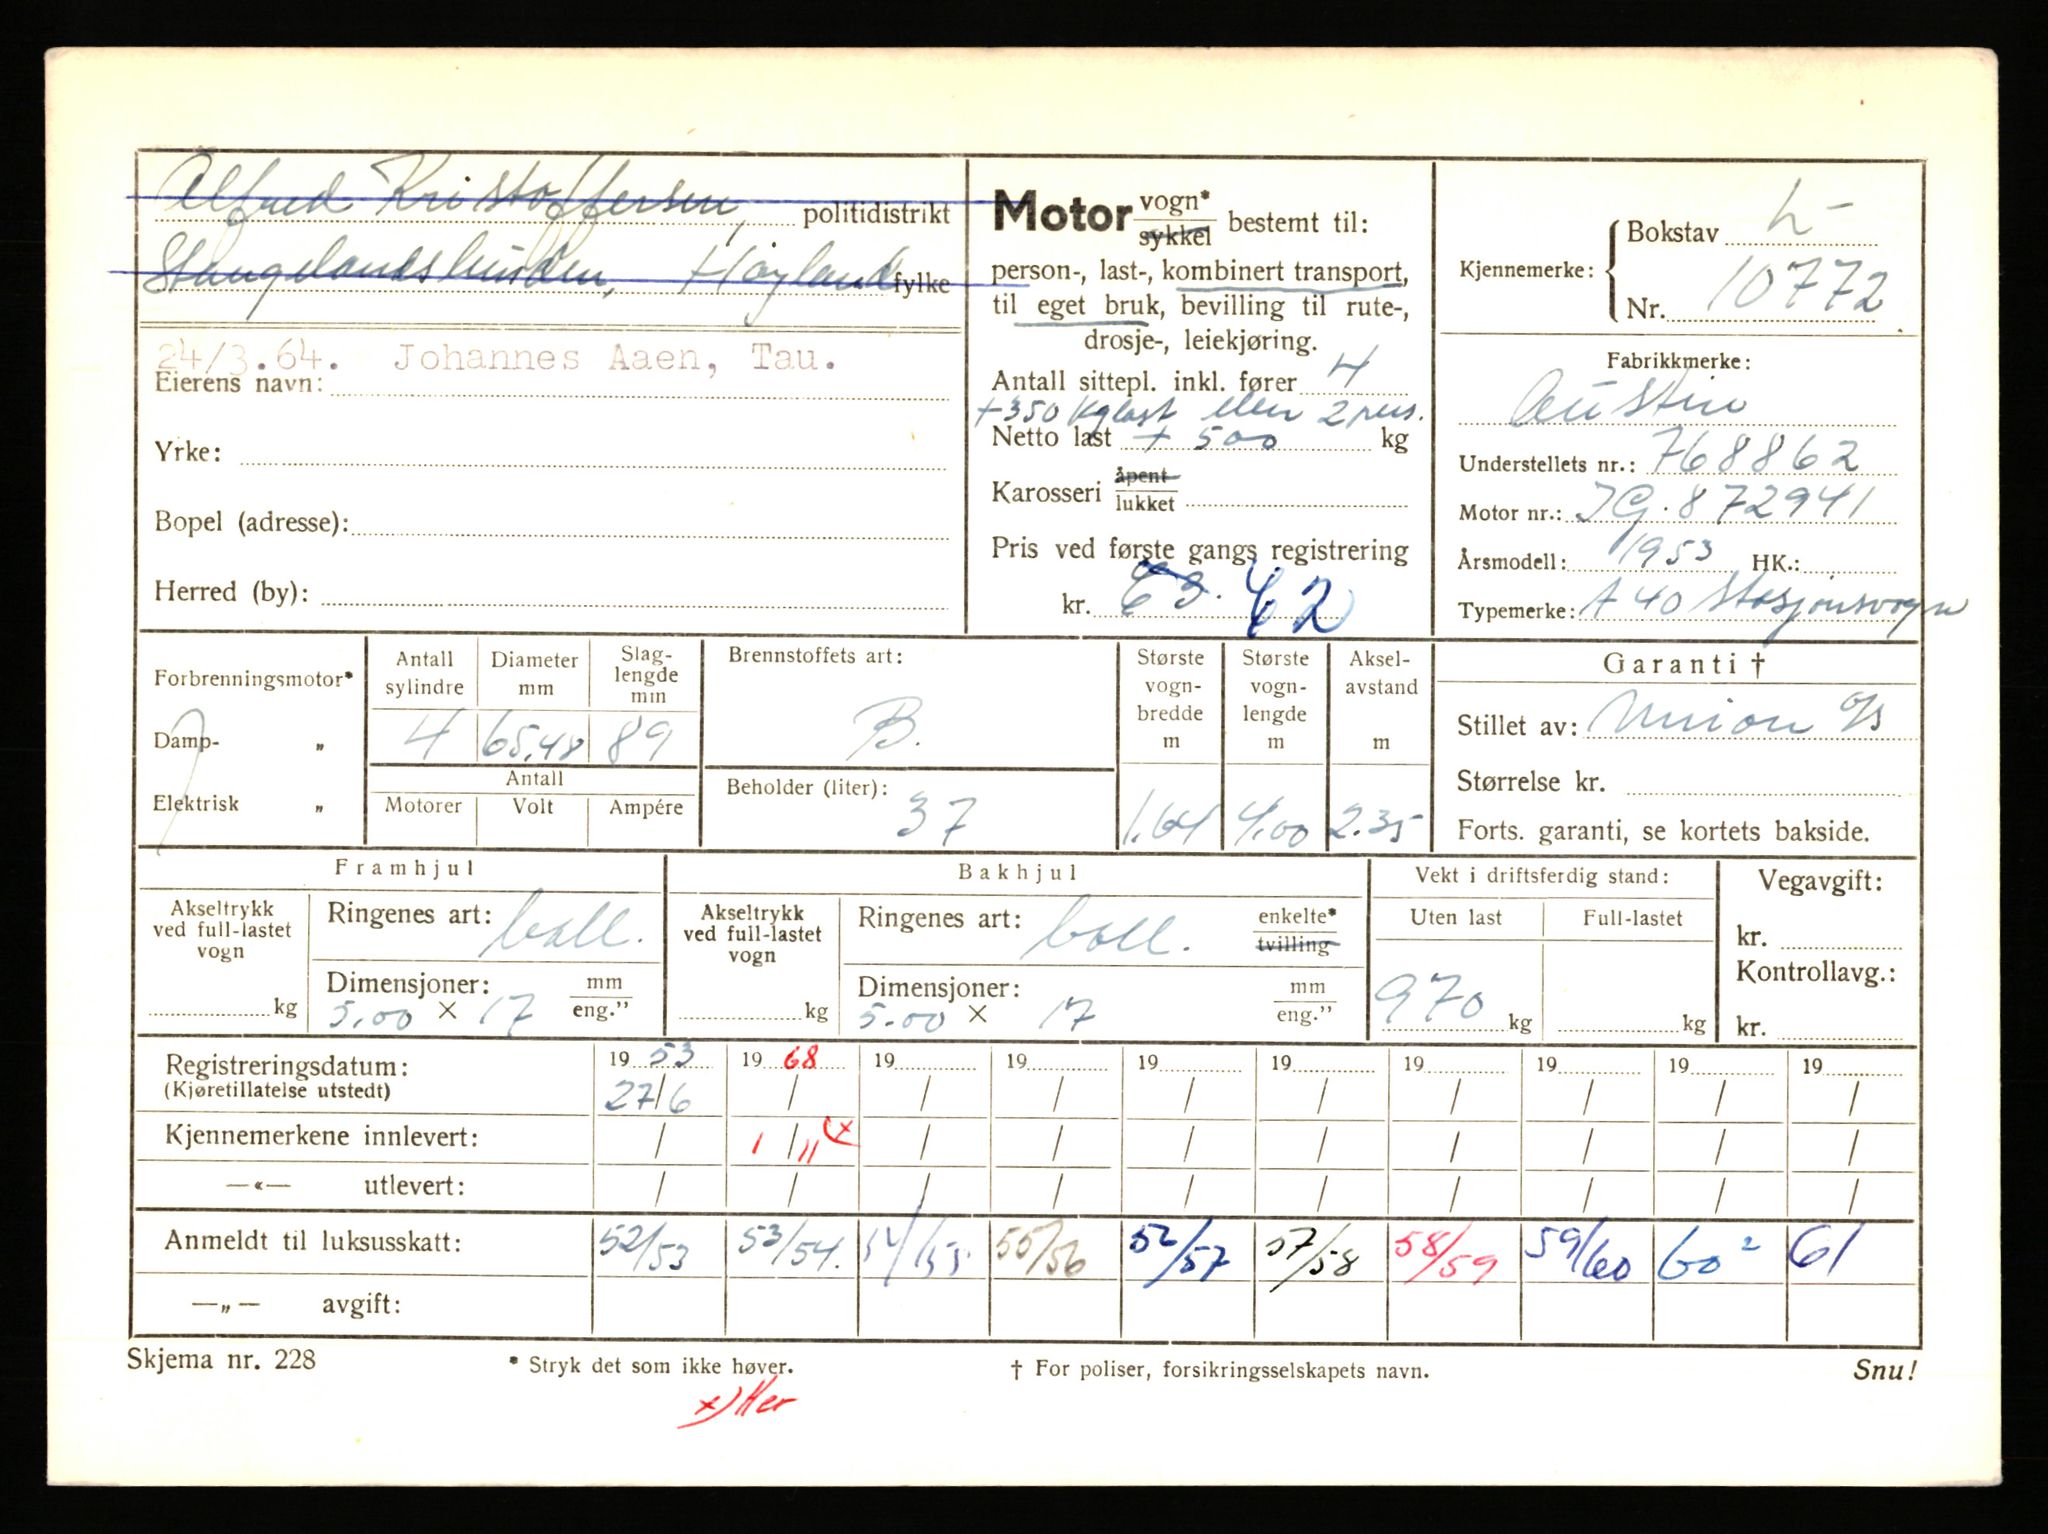 Alfred Kristoffersen, politidistrikt
Stangelandslunden, Høyland fylke
24/3.64. Johannes Aaen, Tau.
Eierens navn:
Yrke:
Bopel (adresse):
Herred (by):
Motor vogn* sykkel bestemt til:
person-, last-, kombinert transport,
til eget bruk, bevilling til rute-,
drosje-, leiekjøring.
Antall sittepl. inkl. fører 4
+350 kg last eller 2 pers.
Netto last + 500 kg
Karosseri åpent lukket
Pris ved første gangs registrering
kr. 63. 62
Kjennemerke: Bokstav L-
Nr. 10772
Fabrikkmerke:
Austin
Understellets nr.: 768862
Motor nr.: IG. 872941
Årsmodell: 1953 HK.:
Typemerke: A 40 Stasjonsvogn
Forbrenningsmotor*
Damp- „
Elektrisk „
Antall sylindre 4
Diameter mm 65,48
Slaglengde mm 89
Antall
Motorer Volt Ampére
Brennstoffets art:
B.
Beholder (liter):
37
Største vognbredde m 1.64
Største vognlengde m 4,00
Akselavstand m 2.35
Garanti †
Stillet av: Union a/s
Størrelse kr.
Forts. garanti, se kortets bakside.
Framhjul
Akseltrykk ved full-lastet vogn kg
Ringenes art: ball.
Dimensjoner: mm eng."
5.00 × 17
Bakhjul
Akseltrykk ved full-lastet vogn kg
Ringenes art: ball. enkelte* tvilling
Dimensjoner: mm eng."
5.00 × 17
Vekt i driftsferdig stand:
Uten last Full-lastet
970 kg kg
Vegavgift:
kr.
Kontrollavg.:
kr.
Registreringsdatum: 19 53 19 68 19 19 19 19 19 19 19 19
(Kjøretillatelse utstedt) 27/6 / / / / / / / / /
Kjennemerkene innlevert: / 1/11 (x / / / / / / / /
—«— utlevert: / / / / / / / / / /
Anmeldt til luksusskatt: 52/53 53/54. 54/55. 55/56 56/57 57/58 58/59 59/60 60² 61
—„— avgift:
Skjema nr. 228 * Stryk det som ikke høver. † For poliser, forsikringsselskapets navn. Snu!
x) Her